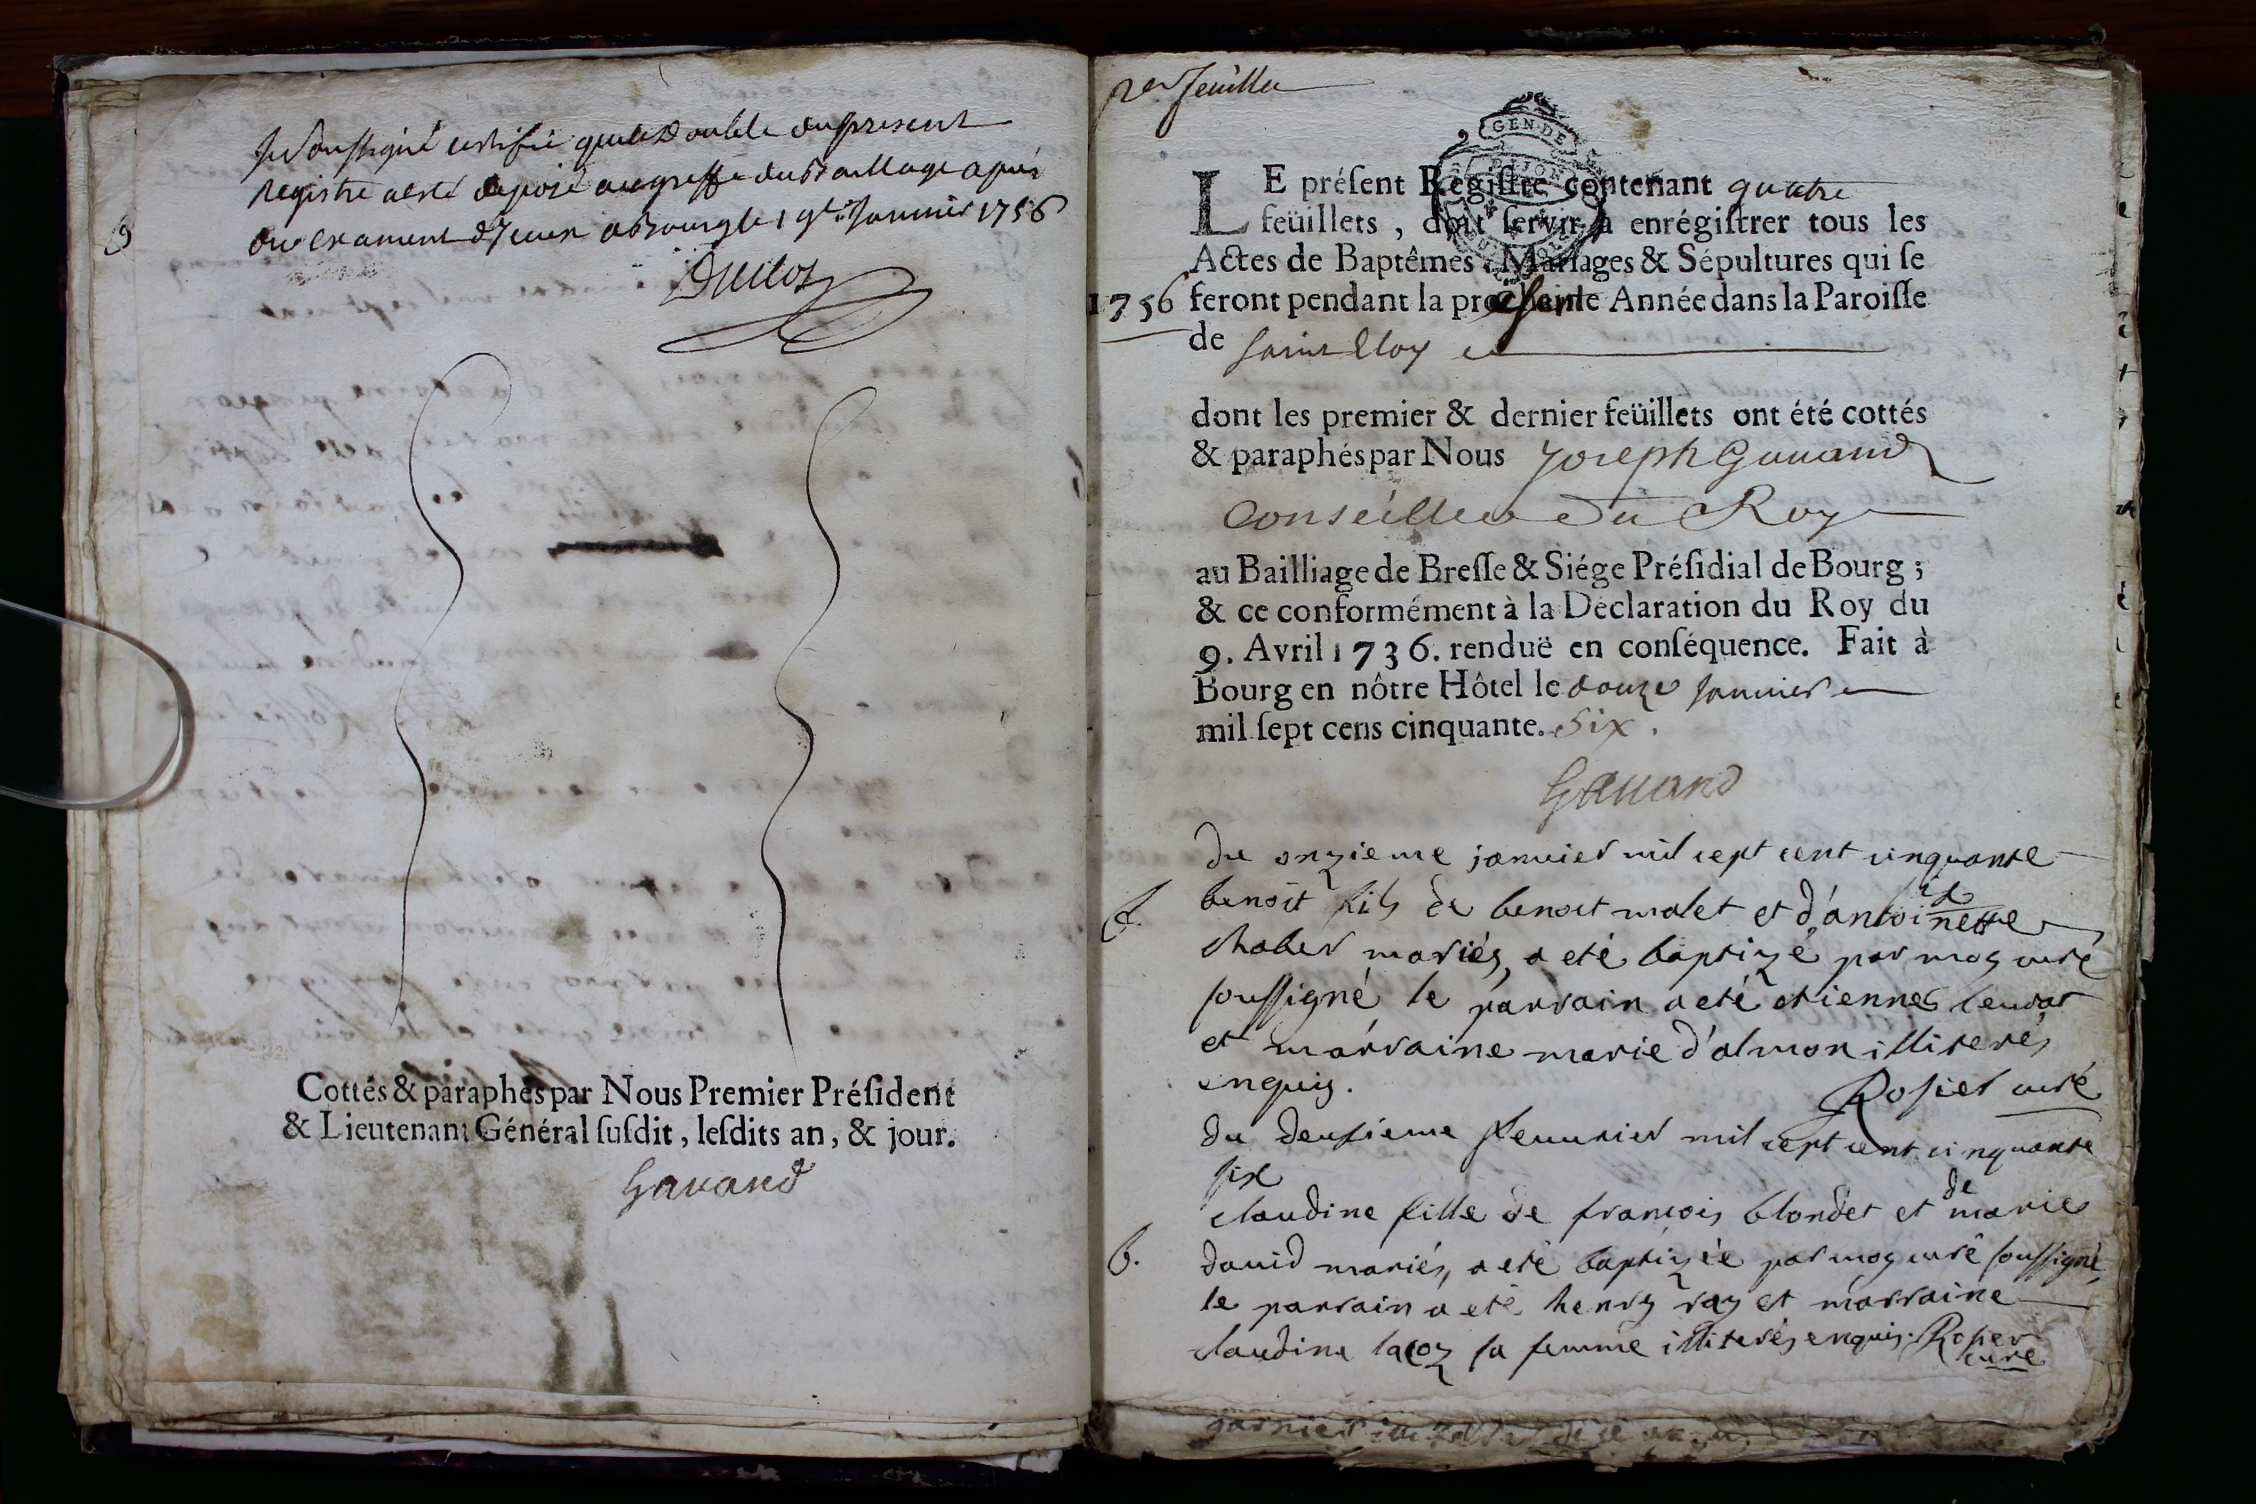 Je soussigné certifie que le double du present
registre a esté deposé au greffe du Baillage apres
l'examen d'jceux a Bourg le 19e Janvier 1756
Duclos
Cottés & paraphés par Nous Premier Préſident
& Lieutenant Général ſuſdit, leſdits an, & jour.
Gauand
1er feuillet
GEN·DE
DIJON
LE préſent Regiſtre contenant quatre
feüillets, doit ſervir à enrégiſtrer tous les
Actes de Baptêmes, Mariages & Sépultures qui ſe
1756 feront pendant la preſente Année dans la Paroiſſe
de Saint Eloy
dont les premier & dernier feüillets ont été cottés
& paraphés par Nous Joseph Gauand
Conseiller du Roy
au Bailliage de Breſſe & Siége Préſidial de Bourg;
& ce conformément à la Déclaration du Roy du
9. Avril 1736. renduë en conſéquence. Fait à
Bourg en nôtre Hôtel le douze Januier
mil ſept cens cinquante. Six.
Gauand
du onzieme januier mil sept cent cinquante
six
b. benoit fils de benoit malet et d'antoinette
chaber mariés, a eté baptizé par moy curé
soussigné, le parrain a eté etienne
et marraine marie d'almon illiterés
enquis.
Rosier curé
du deusieme feuurier mil sept cent cinquante
six
claudine fille de francois blondet et de marie
b. dauid mariés, a eté baptizée par moy curé soussigné,
le parrain a eté henry ray et marraine
claudine lacoz sa femme illiterés enquis. Rosier
curé
garnier